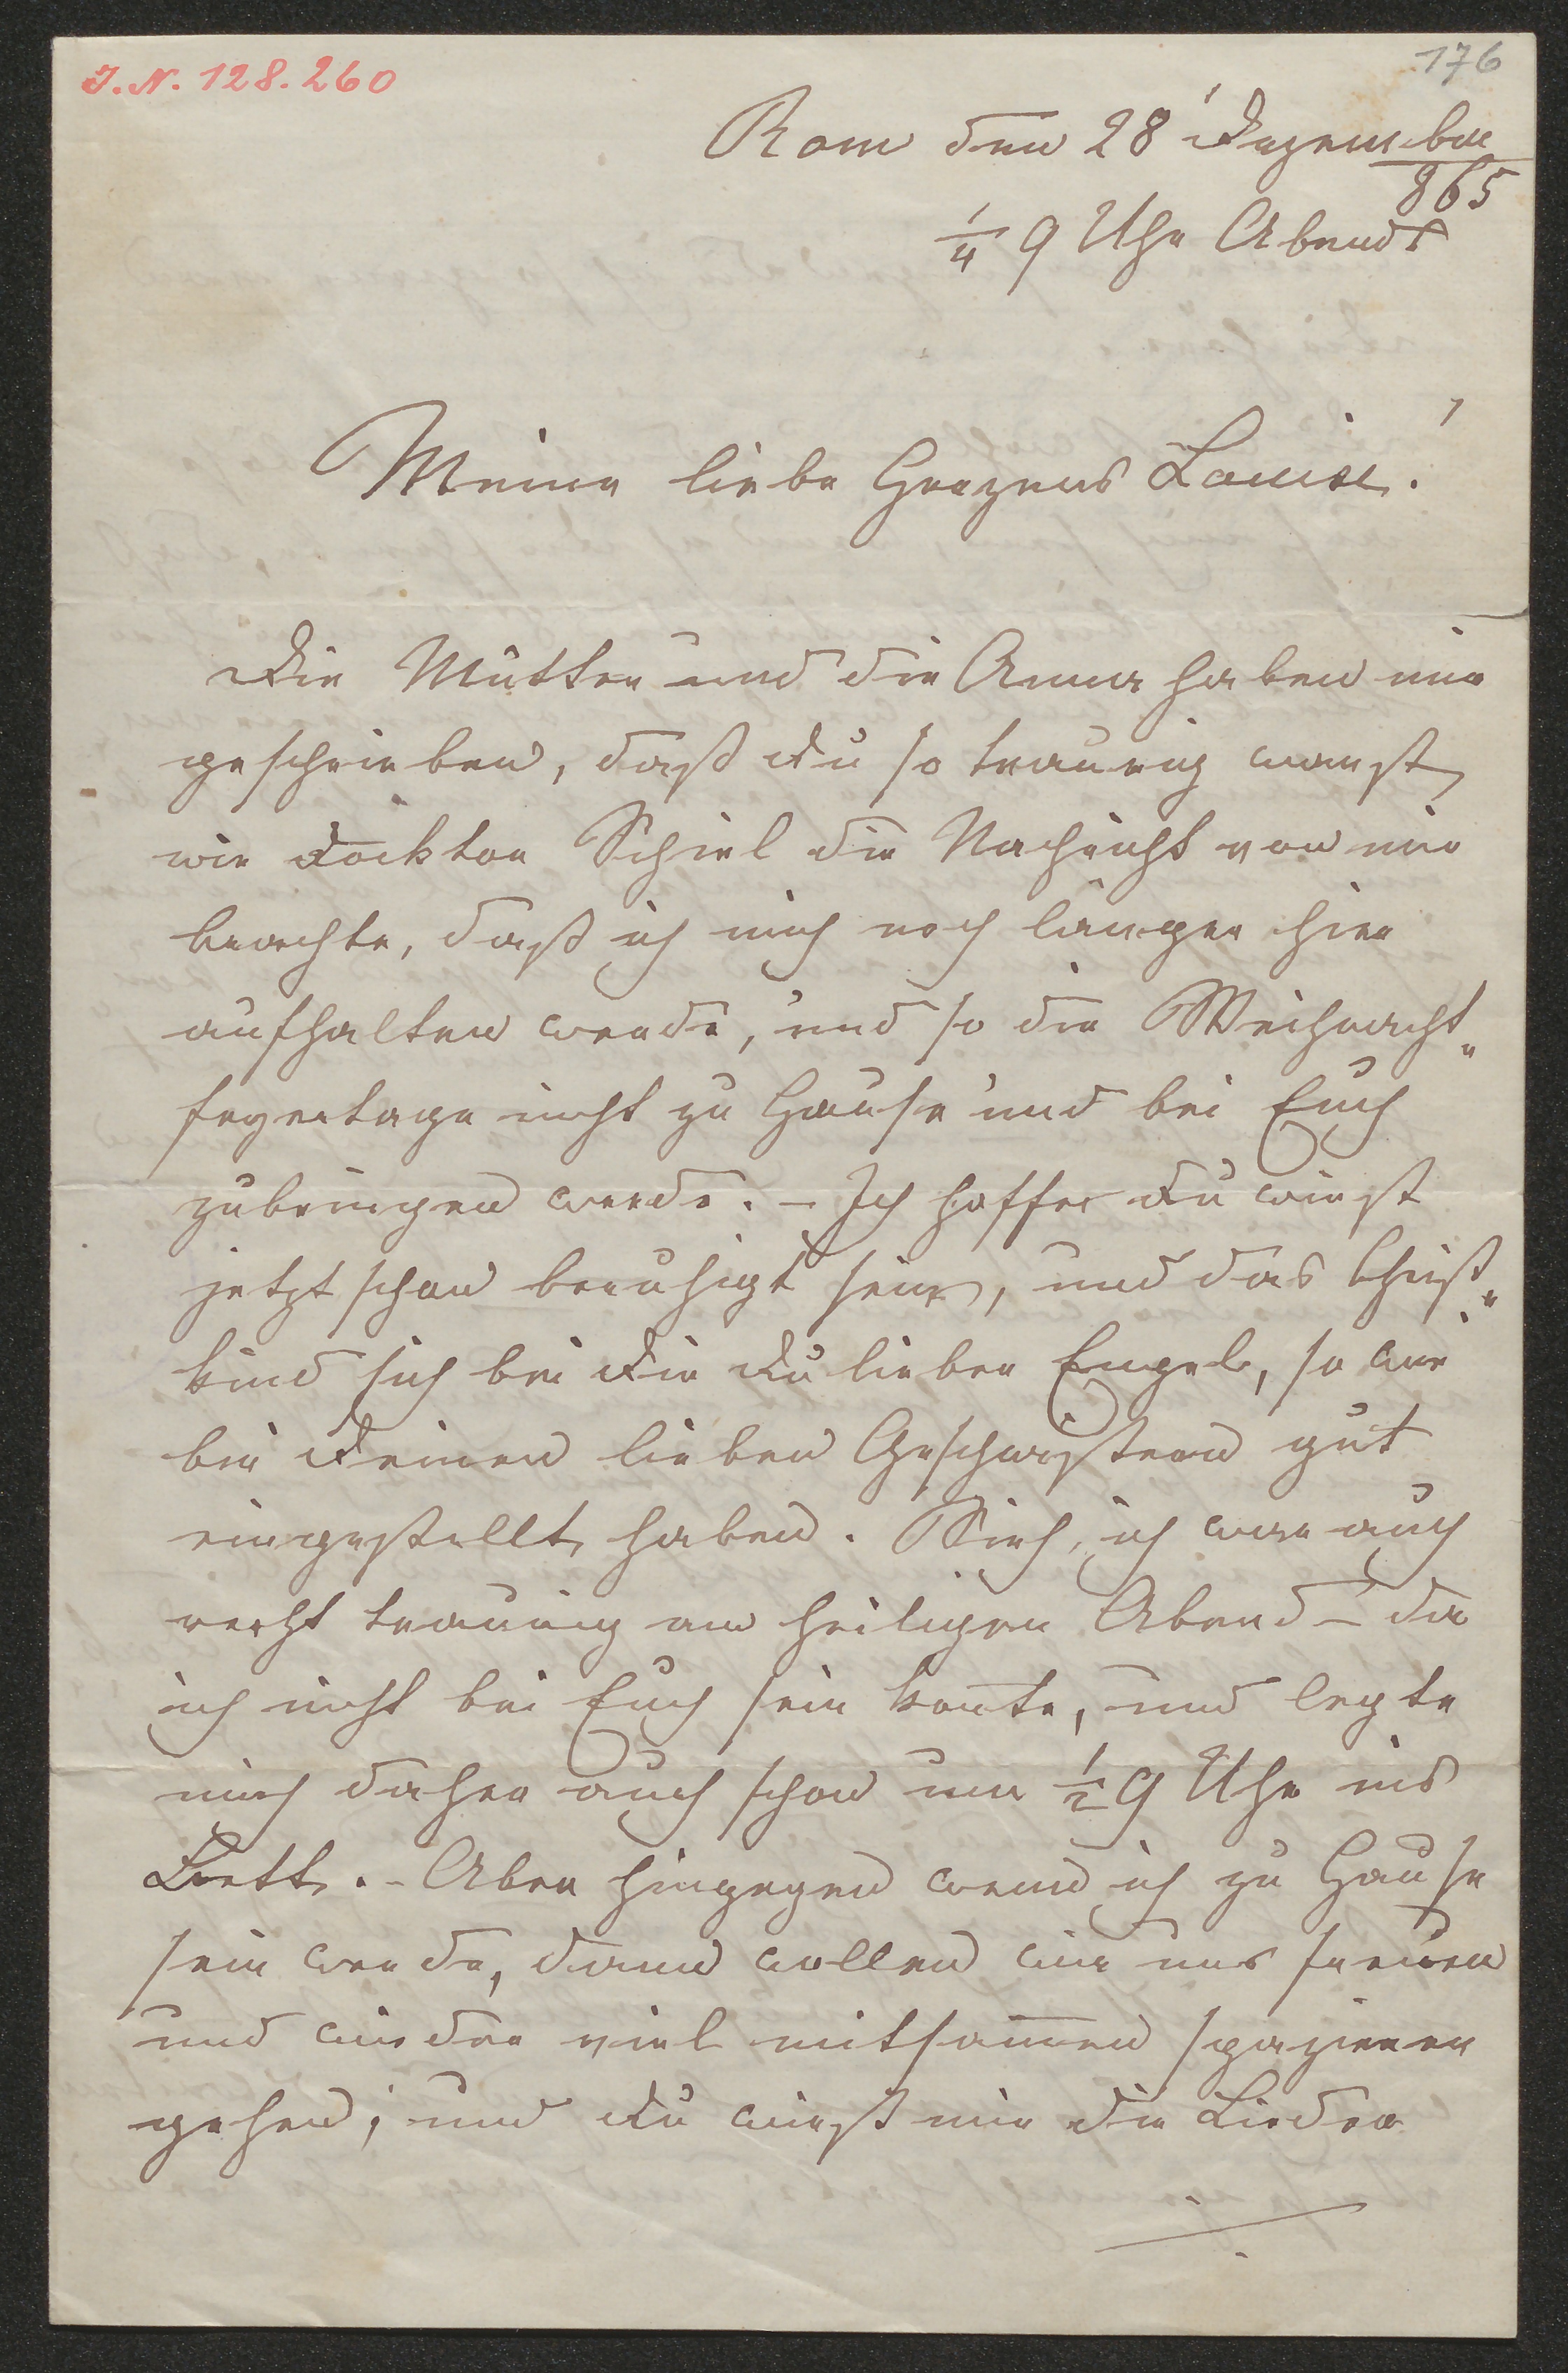 I. N. 128.260
176
Rom den 28' Dezember
865
1/4 9 Uhr Abends
Meine liebe Herzens Louise!
Die Mutter und die Anna haben mir
geschrieben, daß Du so traurig warst,
wie Docktor Schiel die Nachricht von mir
brachte, daß ich mich noch länger hier
aufhalten werde, und so die Weihnacht„
feyertage nicht zu Hause und bei Euch
zubringen werde. – Ich hoffe Du wirst
jetzt schon beruhigt sein, und das Christ„
kind sich bei Dir Du lieber Engel, so wie
bei Deinen lieben Geschwistern gut
eingestellt haben. Sieh, ich war auch
recht traurig am heiligen Abend – da
ich nicht bei Euch sein konte, und legte
mich daher auch schon um 1/2 9 Uhr ins
Bett. – Aber hingegen wenn ich zu Hause
sein werde, dann wollen wir uns freuen
und wieder viel mitsamen spazieren
gehen; und Du wirst mir die Lieder